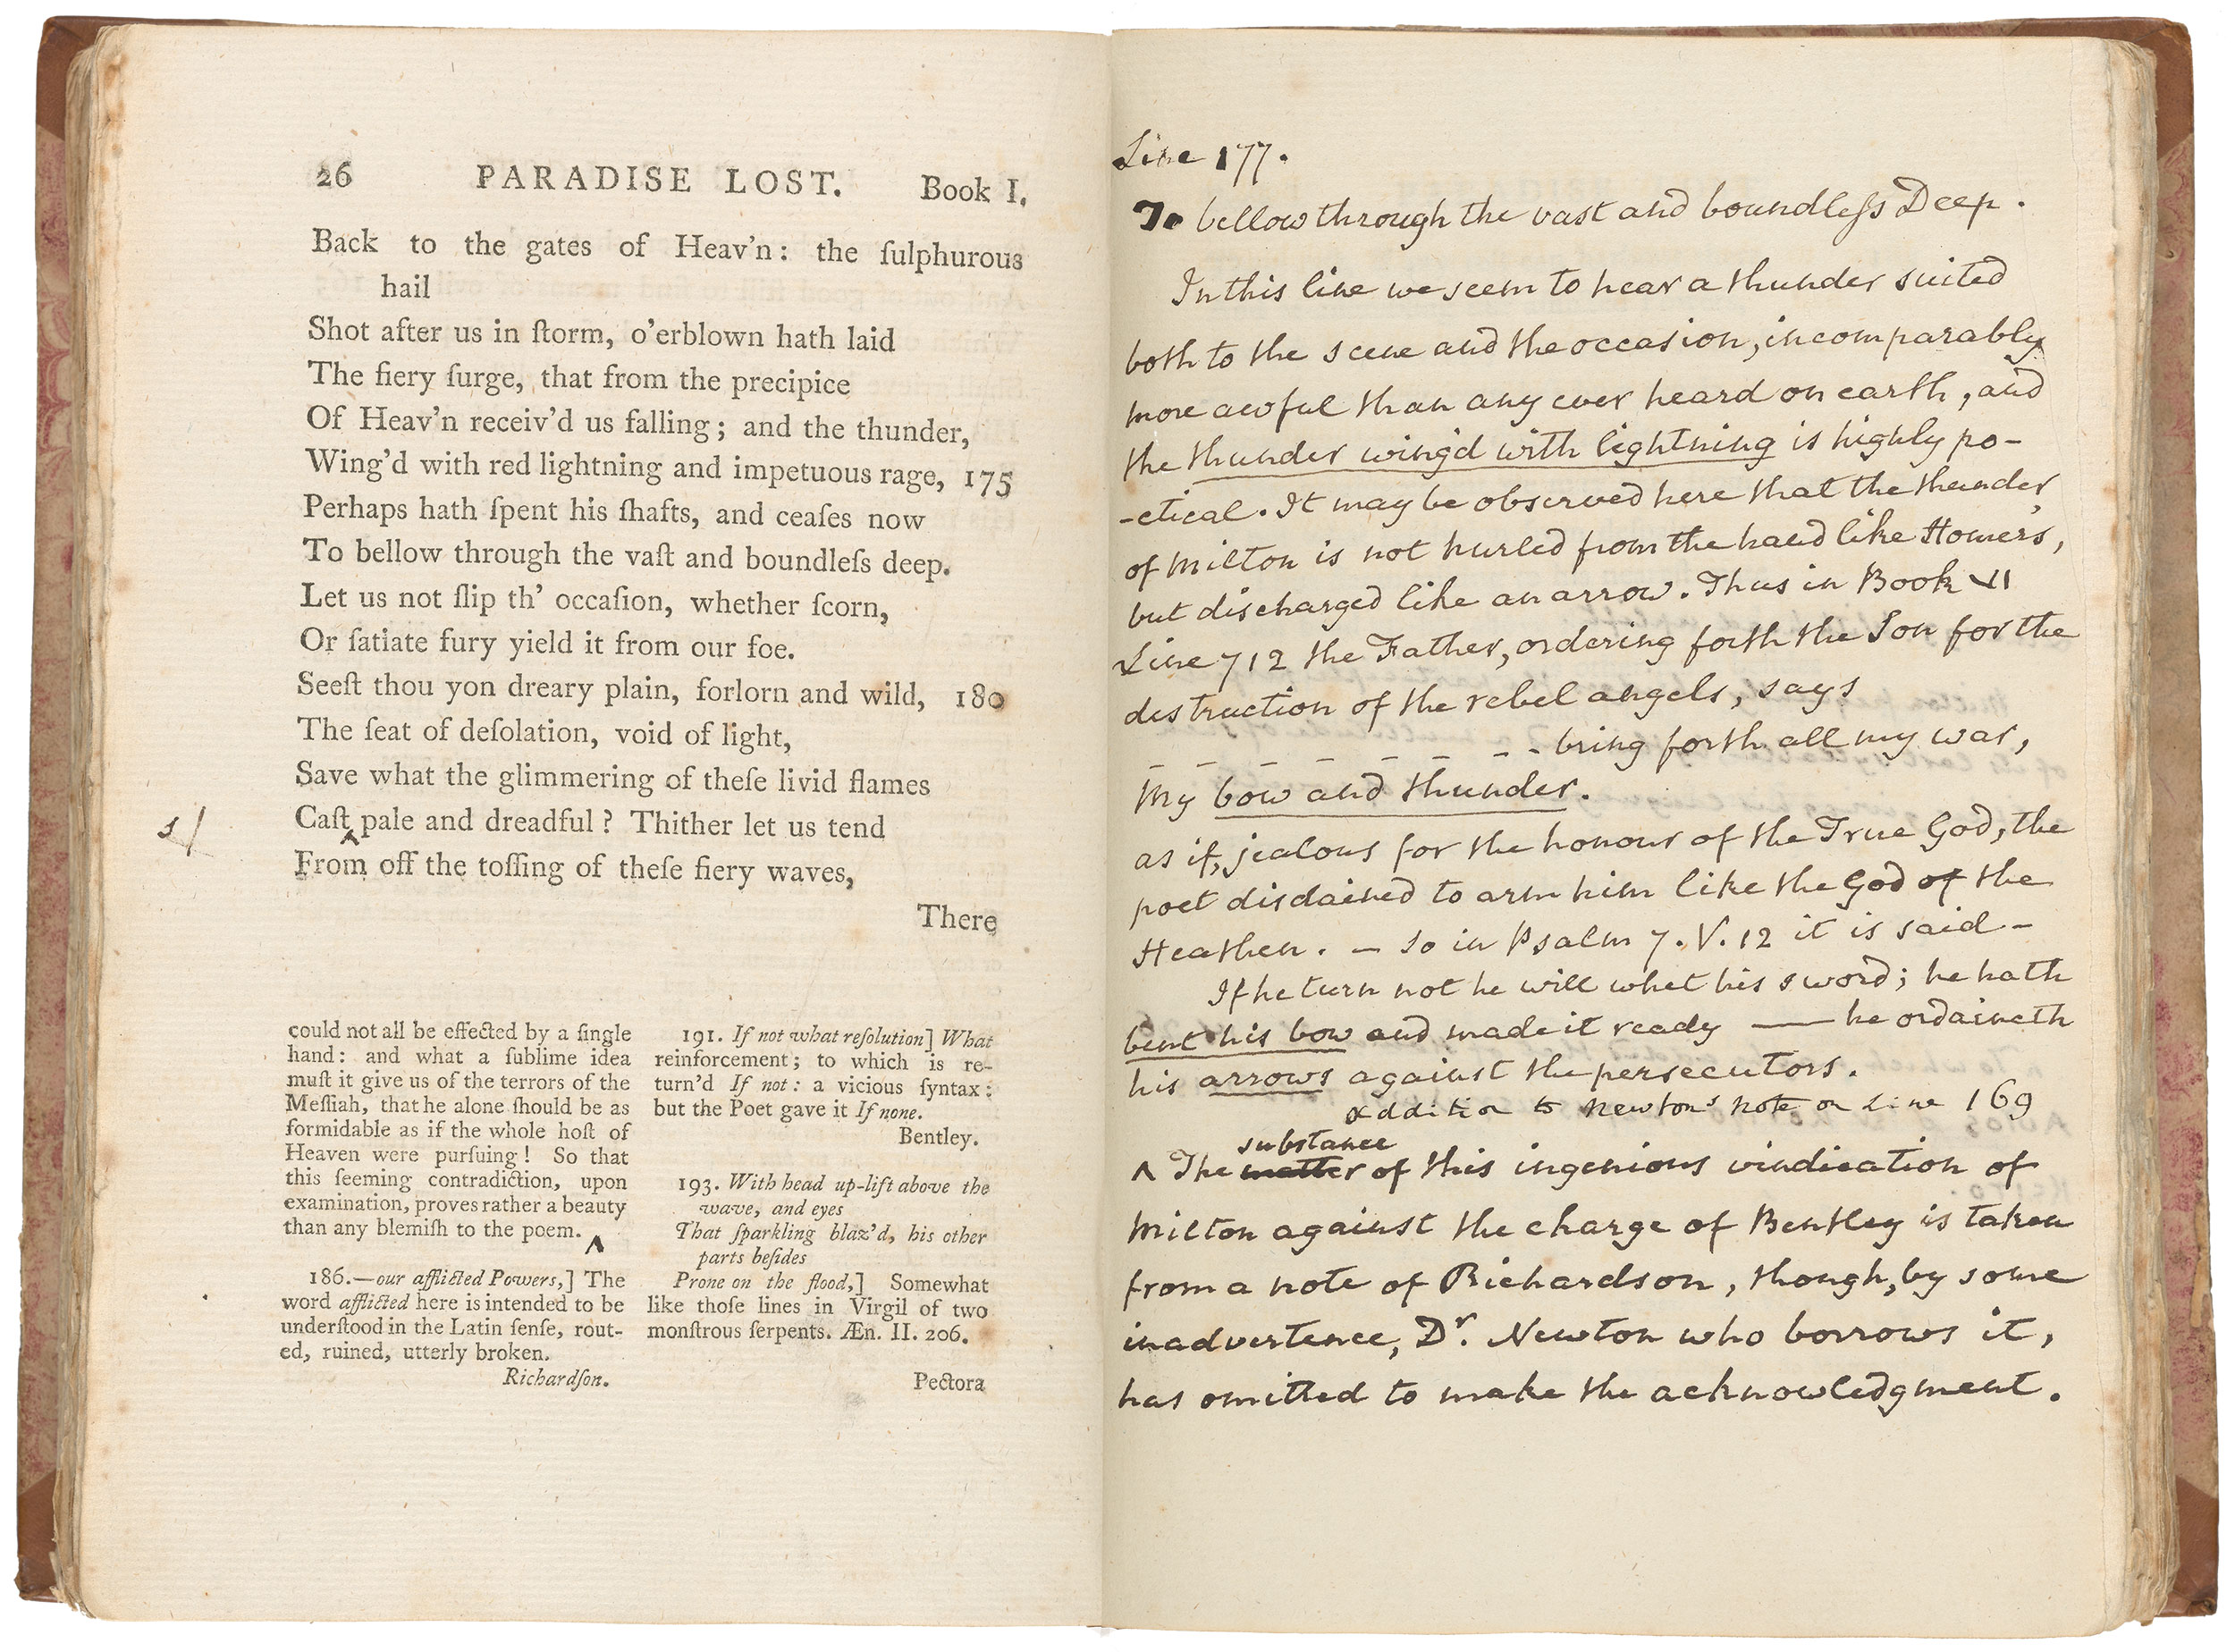 26 PARADISE LOST. Book I.
Back to the gates of Heav'n: the ſulphurous
hail
Shot after us in ſtorm, o'erblown hath laid
The fiery ſurge, that from the precipice
Of Heav'n receiv'd us falling; and the thunder,
Wing'd with red lightning and impetuous rage, 175
Perhaps hath ſpent his ſhafts, and ceaſes now
To bellow through the vaſt and boundleſs deep.
Let us not ſlip th' occaſion, whether ſcorn,
Or ſatiate fury yield it from our foe.
Seeſt thou yon dreary plain, forlorn and wild, 180
The ſeat of deſolation, void of light,
Save what the glimmering of theſe livid flames
s/ Caſt^pale and dreadful? Thither let us tend
From off the toſſing of theſe fiery waves,
There
could not all be effected by a ſingle
hand: and what a ſublime idea
muſt it give us of the terrors of the
Meſſiah, that he alone ſhould be as
formidable as if the whole hoſt of
Heaven were purſuing! So that
this ſeeming contradiction, upon
examination, proves rather a beauty
than any blemiſh to the poem. ^
186.—our afflicted Powers,] The
word afflicted here is intended to be
underſtood in the Latin ſenſe, rout-
ed, ruined, utterly broken.
Richardſon.
191. If not what reſolution] What
reinforcement; to which is re-
turn'd If not: a vicious ſyntax:
but the Poet gave it If none.
Bentley.
193. With head up-lift above the
wave, and eyes
That ſparkling blaz'd, his other
parts beſides
Prone on the flood,] Somewhat
like thoſe lines in Virgil of two
monſtrous ſerpents. Æn. II. 206.
Pectora
Line 177.
To bellow through the vast and boundleſs Deep.
In this line we seem to hear a thunder suited
both to the scene and the occasion, incomparably
more awful than any ever heard on earth, and
the thunder wing'd with lightning is highly po-
-etical. It may be observed here that the thunder
of Milton is not hurled from the hand like Homer's,
but discharged like an arrow. Thus in Book VI
Line 712 the Father, ordering forth the Son for the
destruction of the rebel angels, says
_ _ _ _ _ _ _ - - bring forth all my war,
My bow and thunder.
as if, jealous for the honour of the True God, the
poet disdained to arm him like the God of the
Heathen. — So in Psalm 7. V. 12 it is said —
If he turn not he will whet his sword; he hath
bent his bow and made it ready —— he ordaineth
his arrows against the persecutors.
Addition to Newton's Note on Line 169
substance
^ The matter of this ingenious vindication of
Milton against the charge of Bentley is taken
from a note of Richardson, though, by some
inadvertence, Dr. Newton who borrows it,
has omitted to make the acknowledgment.